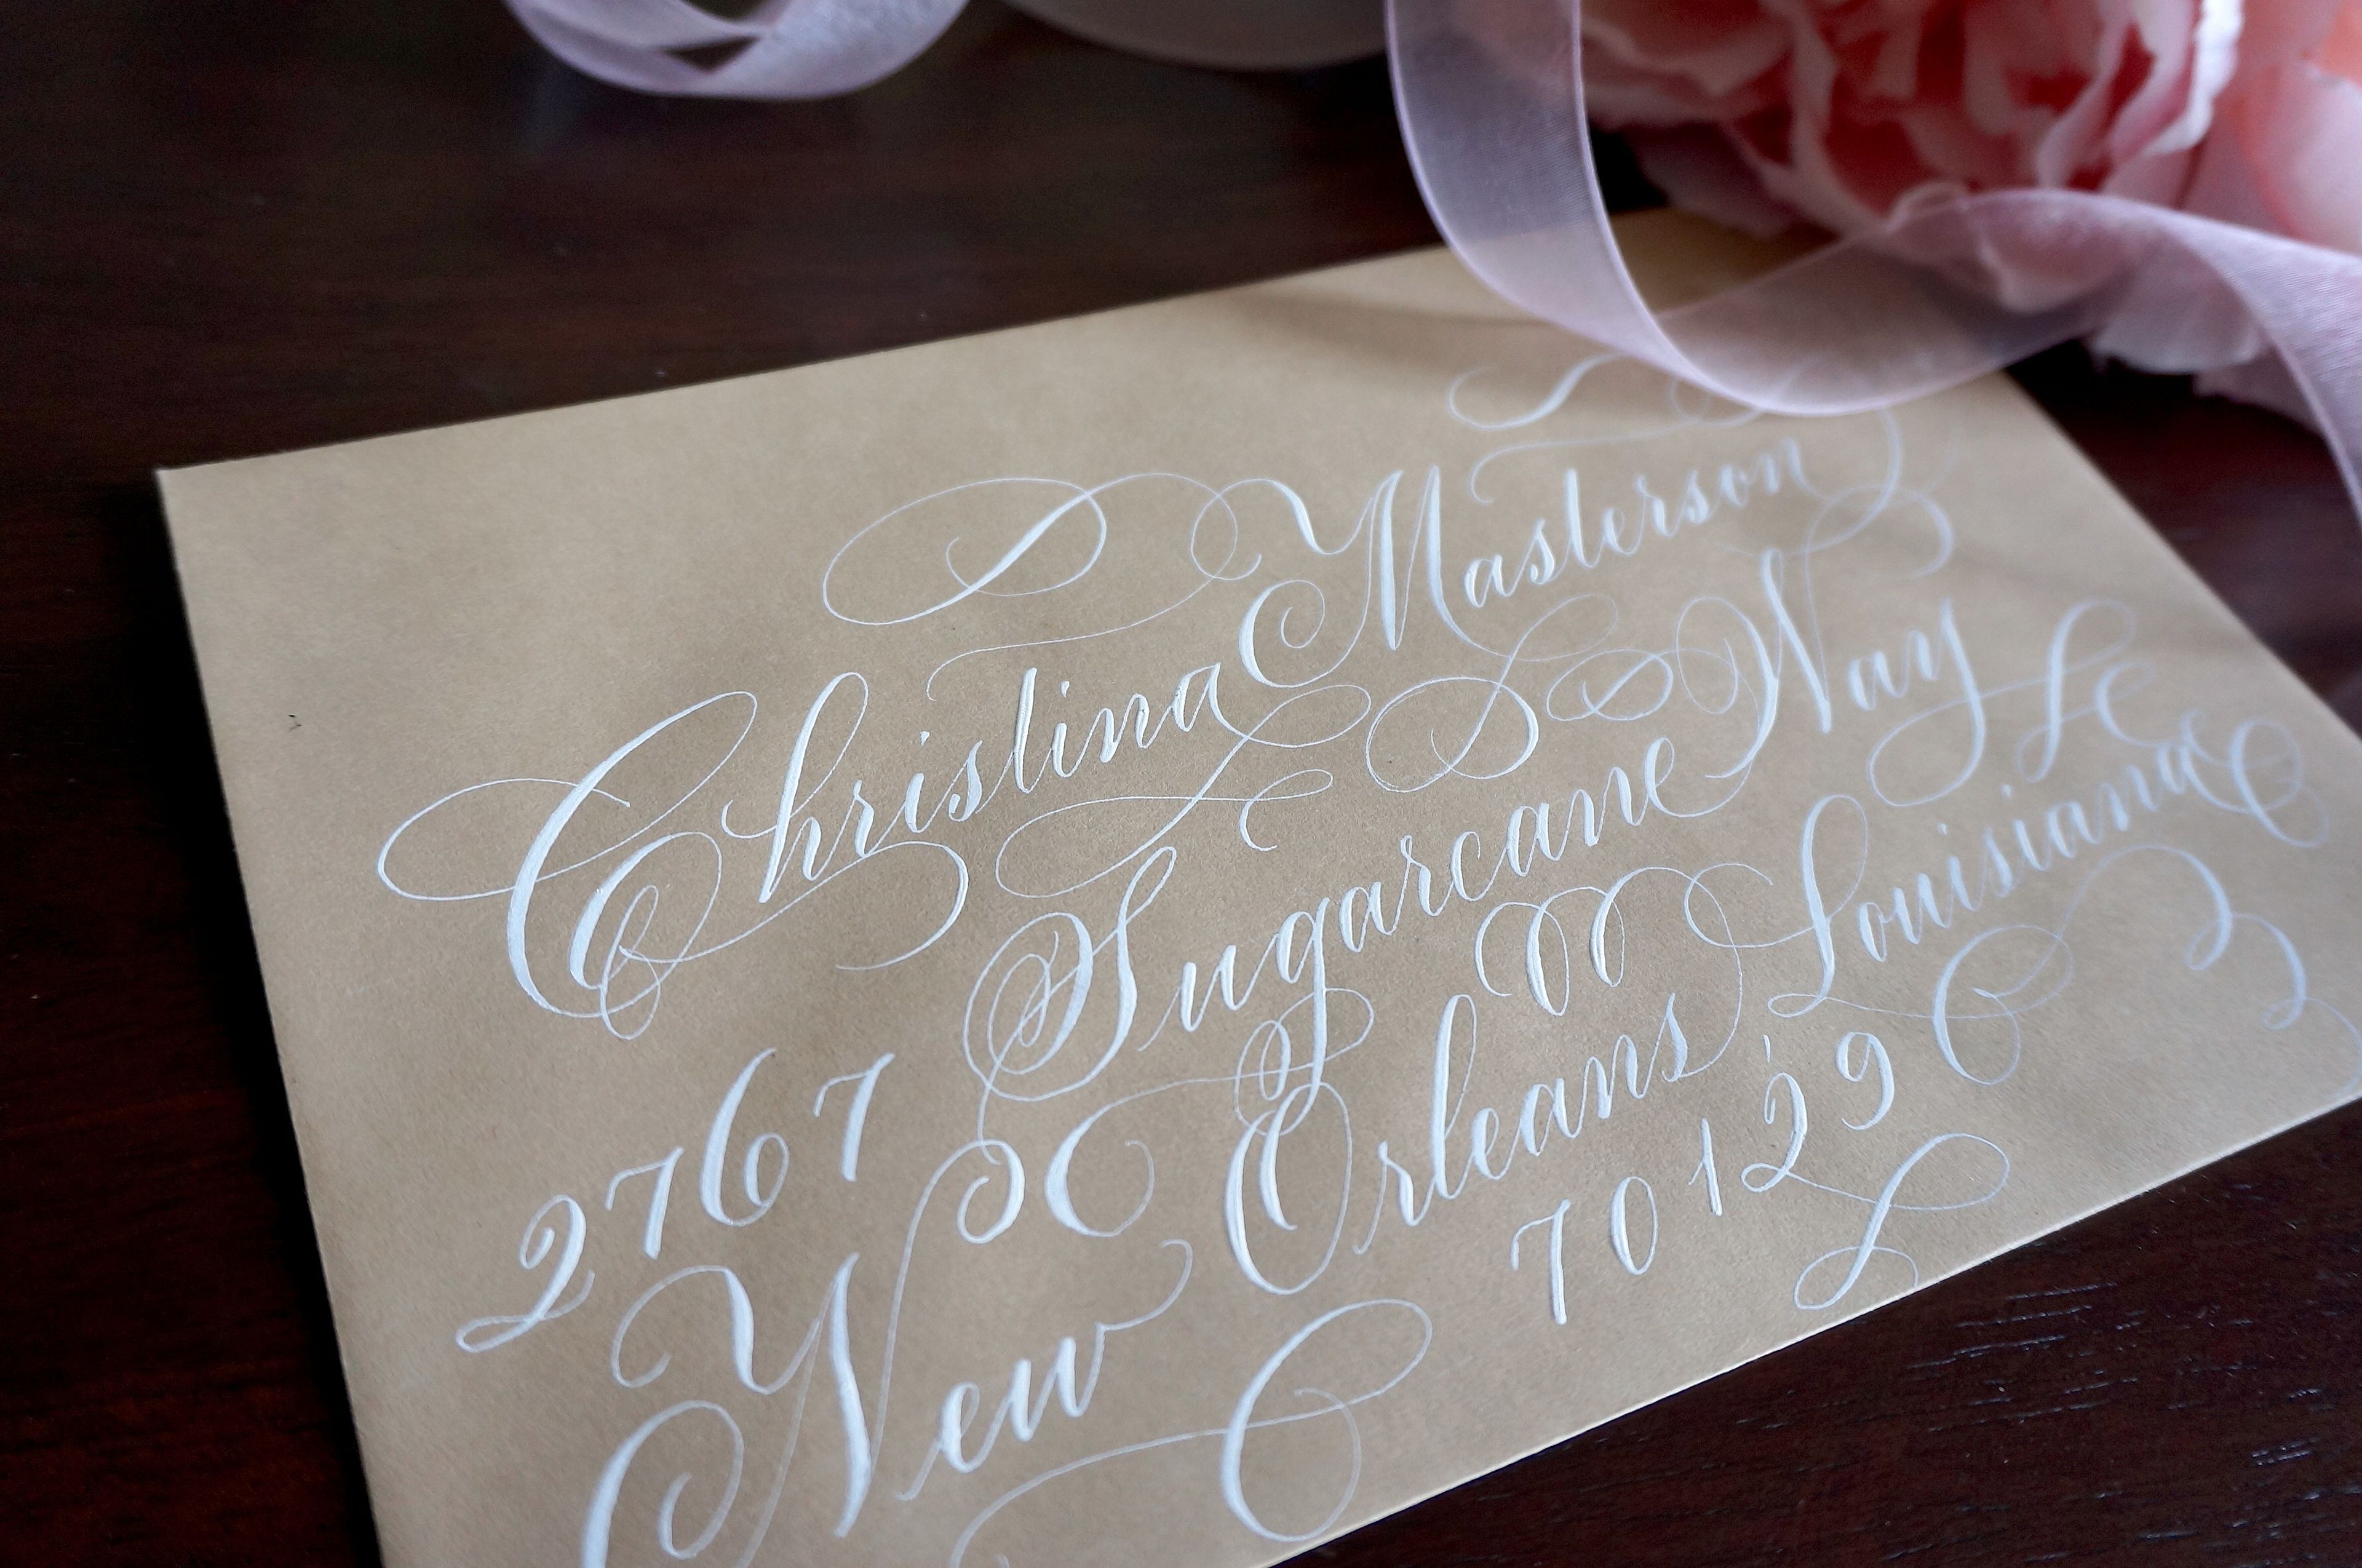 Christina Masterson
2767 Sugarcane Way
New Orleans Louisiana
70129